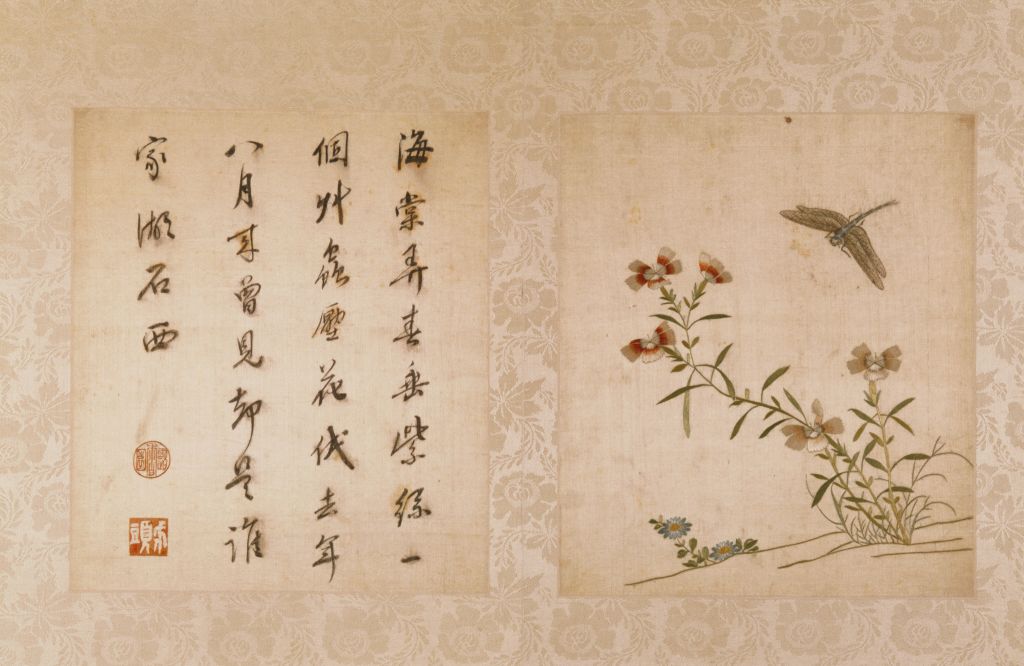 海棠弄春垂紫絲一
個艸蟲壓花低去年
八月曾見却是誰
家湖石西